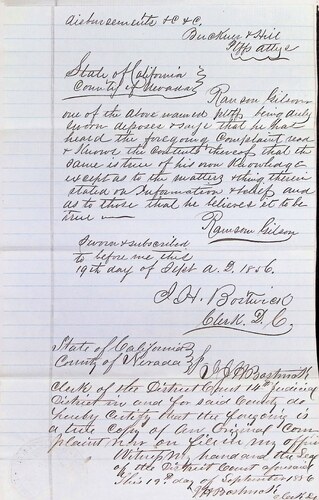 disbursements &C &C.
Buckner & Hill
Plffs attys
State of California }
County of Nevada }
Ranson Gilson
one of the above named pltffs being duly
sworn deposes & says that he has
heard the foregoing Complaint read
& Knows the contents thereof that the
same is true of his own Knowledge
except as to the matters & things therein
stated on Information & belief and
as to those that he believes it to be
true —
Ransom Gilson
Sworn & subscribed
to before me this
19th day of Sept A.D. 1856.
J. H. Bostwick
Clerk D. C.
State of California }
County of Nevada } I J H Bostwick
Clerk of the District Court 14th Judicial
District in and for said County do
hereby Certify that the foregoing is
a true Copy of an Original Com
plaint now on file in my office
Witness my hand and the Seal
of the District Court aforesaid
This 19th day of September 1856
J H Bostwick
Clerk